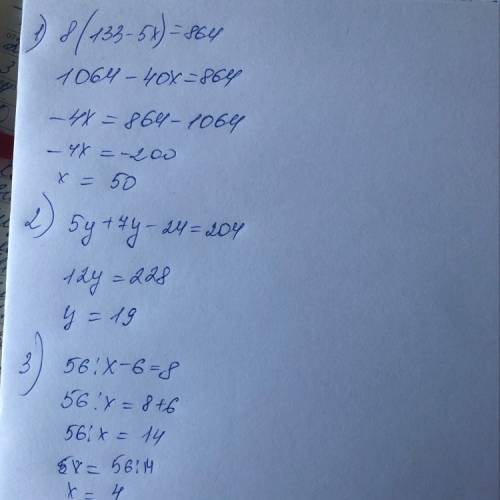 1) 8(133-5x)=864
1064-40x=864
-4x=864-1064
-4x=-200
x=50
2) 5y+7y-24=204
12y=228
y=19
3) 56:x-6=8
56:x=8+6
56:x=14
x=4